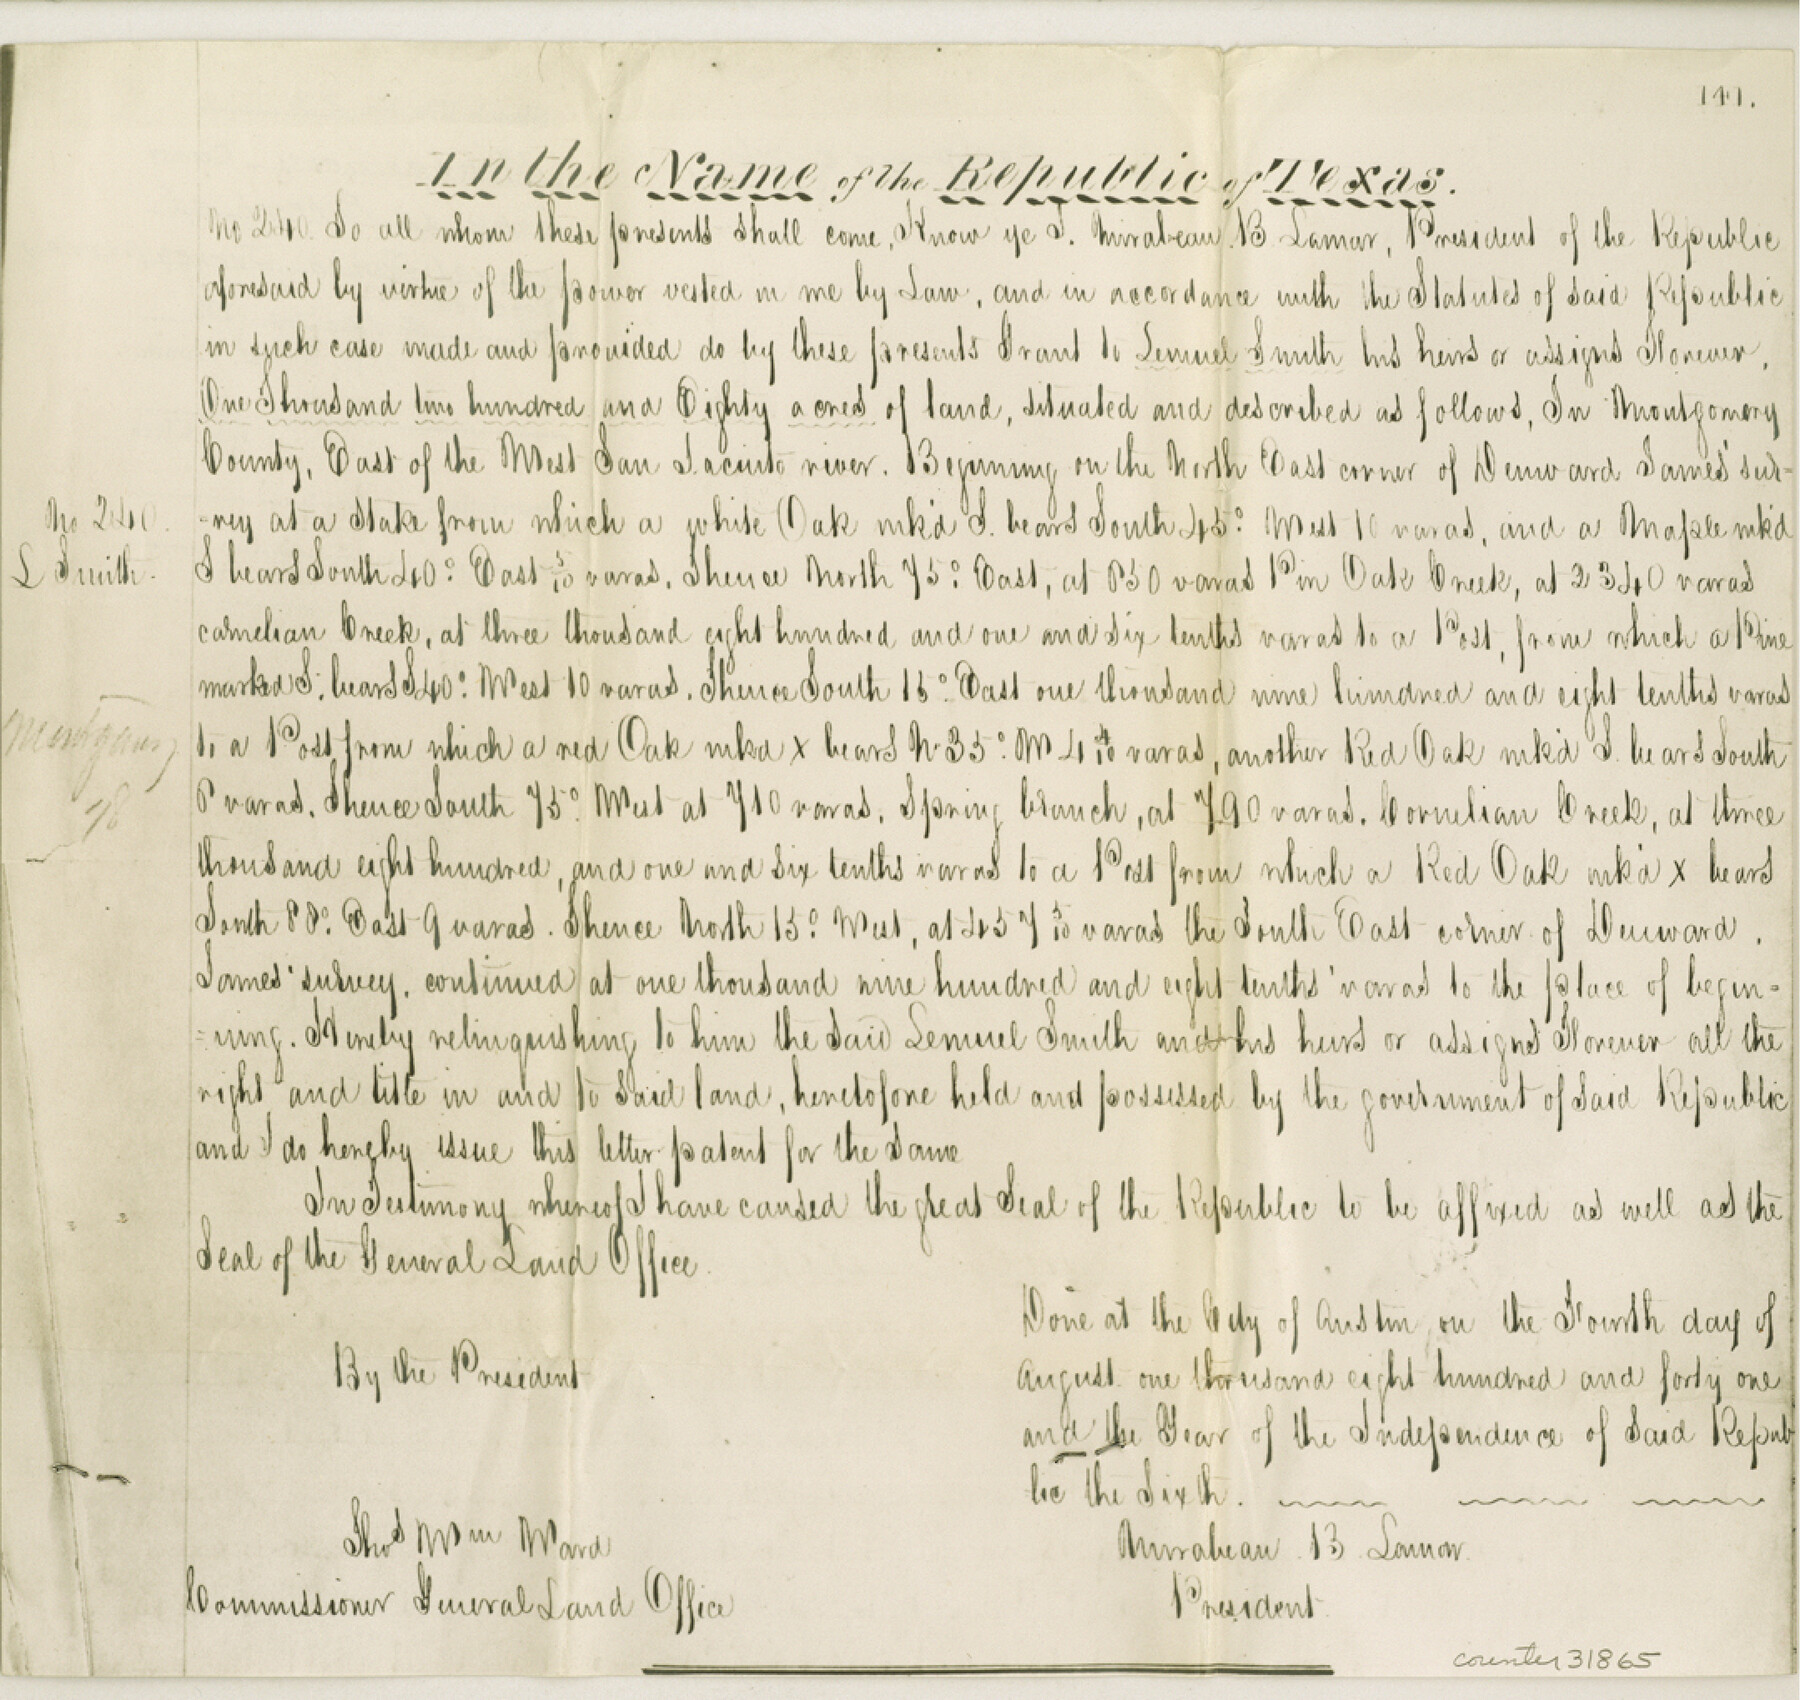 141.
In the Name of the Republic of Texas.
No 240. To all whom these presents shall come, Know ye I. Mirrabeau. B Lamar, President of the Republic
aforesaid by virtue of the power vested in me by Law, and in accordance with the Statutes of said Republic
in such case made and provided do by these presents Grant to Lemuel Smith his heirs or assigns Forever,
One Thousand two hundred and Eighty acres of land, situated and described as follows, In Montgomery
County, East of the West San Jacinto river. Beginning on the North East corner of Denward James' sur-
-vey at a Stake from which a white Oak mk'd S. bears South 45° West 10 varas, and a Maple mk'd
S bears South 40° East 5/10 varas. Thence North 75° East, at 850 varas Pin Oak Creek, at 2340 varas
carnelian Creek, at three thousand eight hundred and one and six tenths varas to a Post, from which a Pine
marked S. bears S40° West 10 varas. Thence South 15° East one thousand nine hundred and eight tenths varas
to a Post from which a red Oak mkd x bears N 35° W 4 4/10 varas, another Red Oak mk'd S. bears South
8 varas. Thence South 75° West at 710 varas. Spring branch, at 790 varas. Cornelian Creek, at three
thousand eight hundred, and one and six tenths varas to a Post from which a Red Oak mk'd x bears
South 88° East 9 varas. Thence North 15° West, at 457 5/10 varas the South East corner of Denward.
James' survey, continued at one thousand nine hundred and eight tenths varas to the place of begin-
-ning. Hereby relinquishing to him the said Lemuel Smith and his heirs or assigns Forever all the
right and title in and to said land, heretofore held and possessed by the government of said Republic
and I do hereby issue this letter patent for the same
In Testimony whereof I have caused the great Seal of the Republic to be affixed as well as the
Seal of the General Land Office.
Done at the City of Austin on the Fourth day of
August one thousand eight hundred and forty one
and the Year of the Independence of said Repub
lic the Sixth.
By the President
Thos Wm Ward
Commissioner General Land Office
Mirrabeau B Lamar.
President
No 240.
L Smith.
Montgomery
78
counter 31865